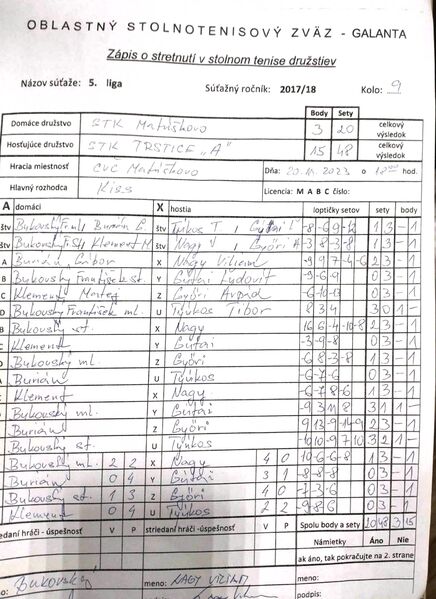 OBLASTNÝ STOLNOTENISOVÝ ZVÄZ - GALANTA
Zápis o stretnutí v stolnom tenise družstiev
Názov súťaže: 5. liga Súťažný ročník: 2017/18 Kolo: 9
Body Sety
Domáce družstvo STK Matúškovo 3 20 celkový výsledok
Hosťujúce družstvo STK TRSTICE "A" 15 48 celkový výsledok
Hracia miestnosť CVČ Matúškovo Dňa: 20.11.2023 o 18 00 hod.
Hlavný rozhodca Kiss Licencia: M A B C číslo:
A domáci X hostia loptičky setov sety body
štv Bukovský Fr. ml., Burián G. štv Tyukos T, Gyutai Ľ -8 -6 9 -12 1 3 - 1
štv Bukovský F. St, Klement M štv Nagy V, Győri A -3 8 -3 -8 1 3 - 1
A Burián Gábor X Nagy Viliam 2 3 - 1
B Bukovský František st. Y Gyutai Ľudovít -9 -6 -9 0 3 - 1
C Klement Matej Z Győri Arpád -6 -10 -13 0 3 - 1
D Bukovský František ml. U Tyukos Tibor 8 3 4 3 0 1 -
B Bukovský st. X Nagy 16 6 -4 -10 -8 2 3 - 1
C Klement Y Gyutai -3 -9 -8 0 3 - 1
Bukovský ml. Z Győri -6 8 -3 -8 1 3 - 1
Burián U Tyukos -6 -7 -6 0 3 - 1
Klement X Nagy -6 7 -8 -6 1 3 - 1
Bukovský ml. Y Gyutai -9 3 11 8 3 1 1 -
Burián Z Győri 2 3 - 1
Bukovský st. U Tyukos 3 2 1 -
Bukovský ml. 2 2 X Nagy 4 0 10 -6 -6 -8 1 3 - 1
Burián 0 4 Y Gyutai 3 1 -8 -8 -8 0 3 - 1
Bukovský st. 1 3 Z Győri 4 0 -7 -3 -6 0 3 - 1
Klement 0 4 U Tyukos 2 2 -9 -8 -6 0 3 - 1
striedaní hráči -úspešnosť V P striedaní hráči -úspešnosť V P Spolu body a sety 3 15
Námietky Áno Nie
ak áno, tak pokračujte na 2. strane
Bukovský meno: NAGY VILIAM meno:
podpis: